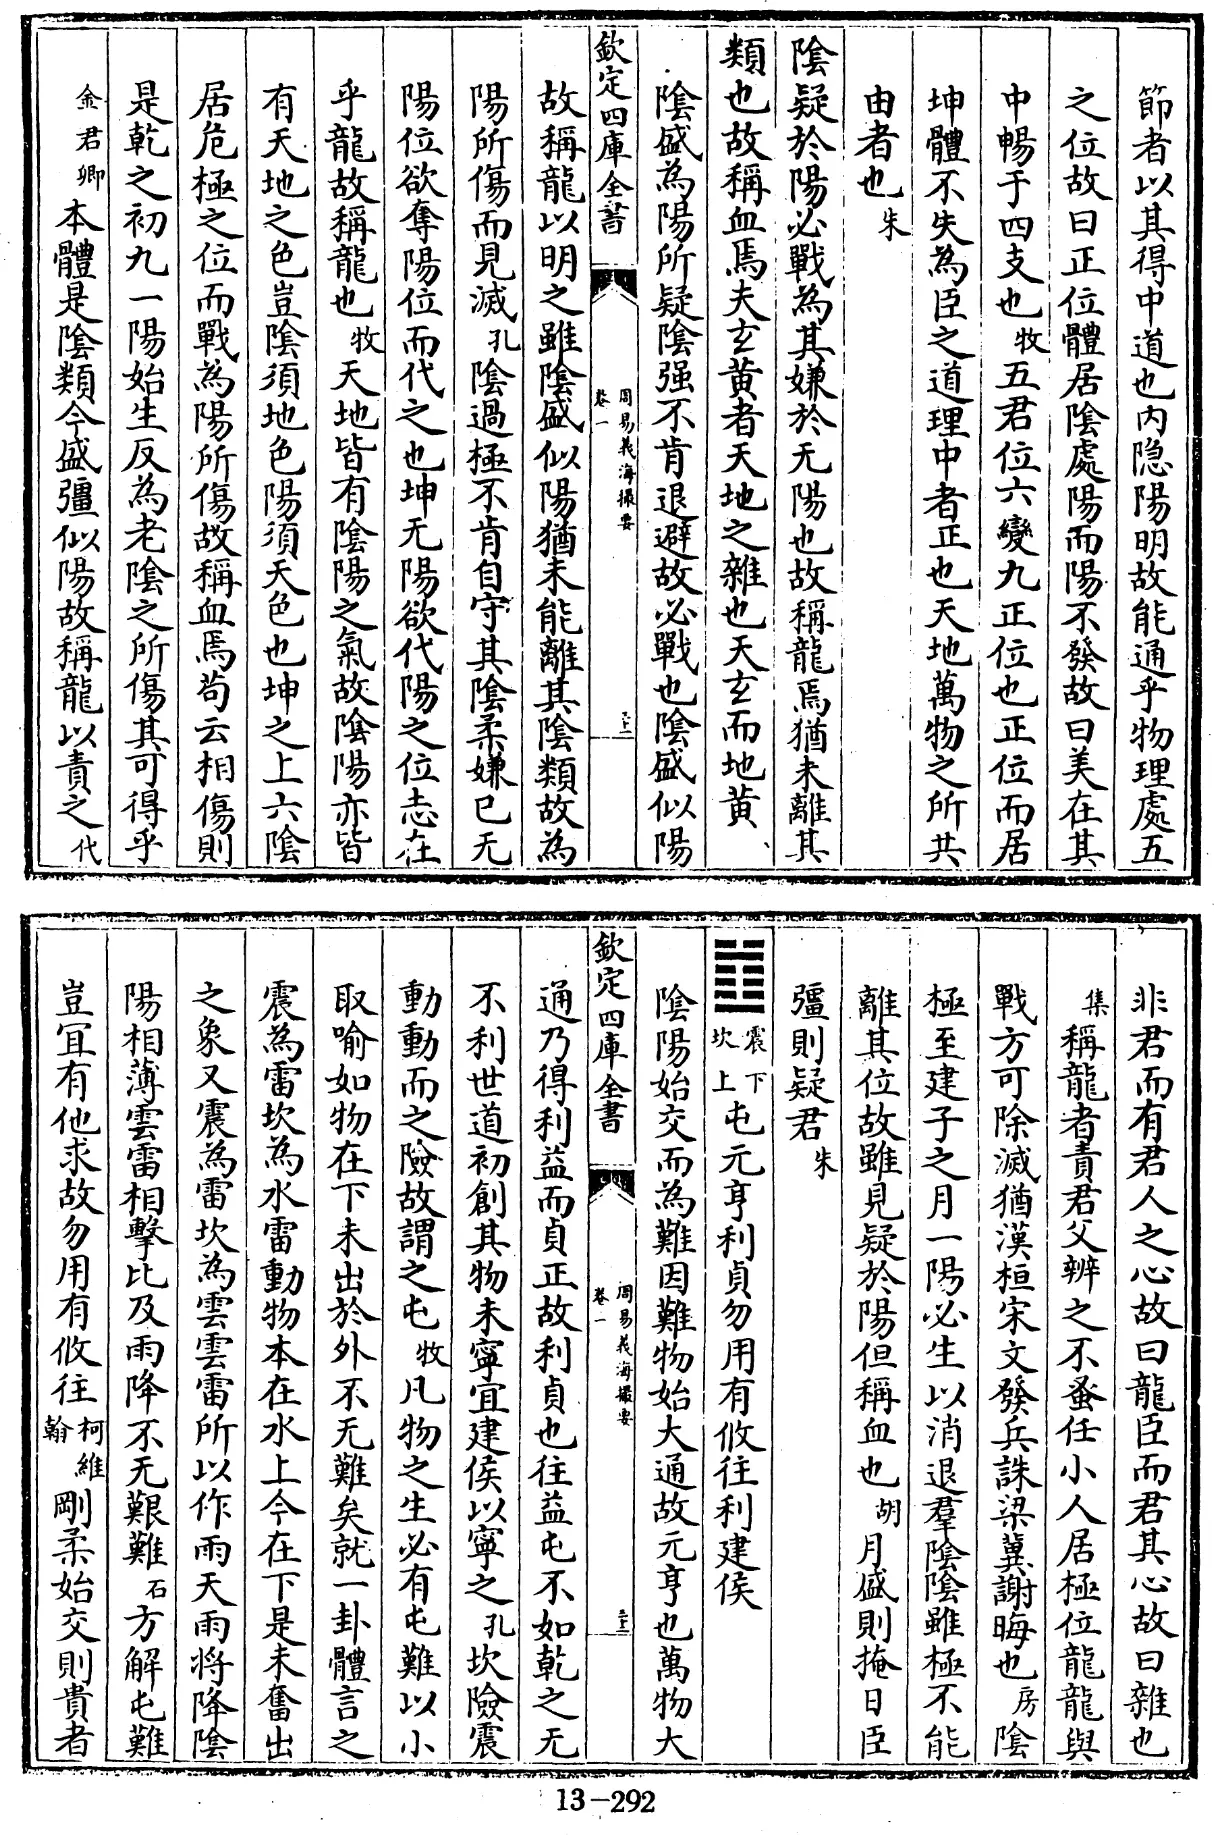 節者以其得中道也内隐陽明故能通乎物理處五
之位故曰正位體居陰處陽而陽不發故曰美在其
中暢于四支也牧五君位六變九正位也正位而居
坤體不失為臣之道理中者正也天地萬物之所共
由者也朱
陰疑於陽必戰為其嫌於无陽也故稱龍焉猶未離其
類也故稱血焉夫玄黄者天地之雜也天玄而地黄
陰盛為陽所疑陰强不肯退避故必戰也陰盛似陽
欽定四庫全書
周易義海撮要
卷一
故稱龍以明之雖陰盛似陽猶未能離其陰類故為
陽所傷而見滅孔陰過極不肯自守其陰柔嫌已无
陽位欲奪陽位而代之也坤无陽欲代陽之位志在
乎龍故稱龍也牧天地皆有陰陽之氣故陰陽亦皆
有天地之色豈陰須地色陽須天色也坤之上六陰
居危極之位而戰為陽所傷故稱血焉荀云相傷則
是乾之初九一陽始生反為老陰之所傷其可得乎
金君卿本體是陰類今盛彊似陽故稱龍以責之代
非君而有君人之心故曰龍臣而君其心故曰雜也
集稱龍者責君父辨之不蚤任小人居極位龍龍與
戰方可除滅猶漢桓宋文發兵誅梁冀謝晦也房陰
極至建子之月一陽必生以消退羣陰陰雖極不能
離其位故雖見疑於陽但稱血也胡月盛則掩日臣
彊則疑君朱
䷂震下坎上屯元亨利貞勿用有攸往利建侯
陰陽始交而為難因難物始大通故元亨也萬物大
欽定四庫全書
周易義海撮要
卷一
通乃得利益而貞正故利貞也往益屯不如乾之无
不利世道初創其物未寧宜建侯以寧之孔坎險震
動動而之險故謂之屯牧凡物之生必有屯難以小
取喻如物在下未出於外不无難矣就一卦體言之
震為雷坎為水雷動物本在水上今在下是未奮出
之象又震為雷坎為雲雲雷所以作雨天雨将降陰
陽相薄雲雷相擊比及雨降不无艱難石方解屯難
豈冝有他求故勿用有攸往柯維翰剛柔始交則貴者
13-292